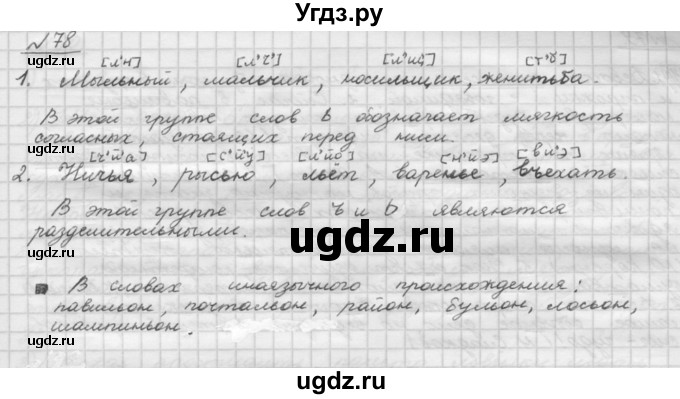 Угдз.ру
№ 78
[л'н] [л'ч'] [л'щ'] [т'б]
1. Мыльный, мальчик, носильщик, женитьба.
В этой группе слов ь обозначает мягкость
согласных, стоящих перед ними.
[ч'й'а] [с'й'у] [л'й'о] [н'й'э]
2. Ничья, рысью, льёт, варенье, въехать.
В этой группе слов ъ и ь являются
разделительными.
В словах иноязычного происхождения:
павильон, почтальон, район, бульон, лосьон,
шампиньон.
ugdz.ru
ugdz.ru
ugdz.ru
ugdz.ru
ugdz.ru
ugdz.ru
ugdz.ru
ugdz.ru
ugdz.ru
ugdz.ru